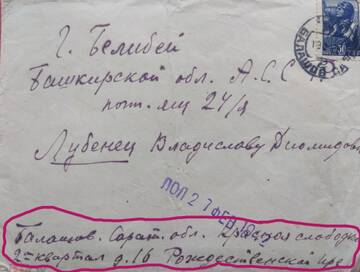 г. Белибей
Башкирской обл. А.С.С.Р.
почт. ящ 24/я
Лубенец Владиславу Диомидов
ПОЛ 2 1 ФЕВ
Балашов. Сарат. обл. Красная слободка
2 квартал д. 16 Рождественской